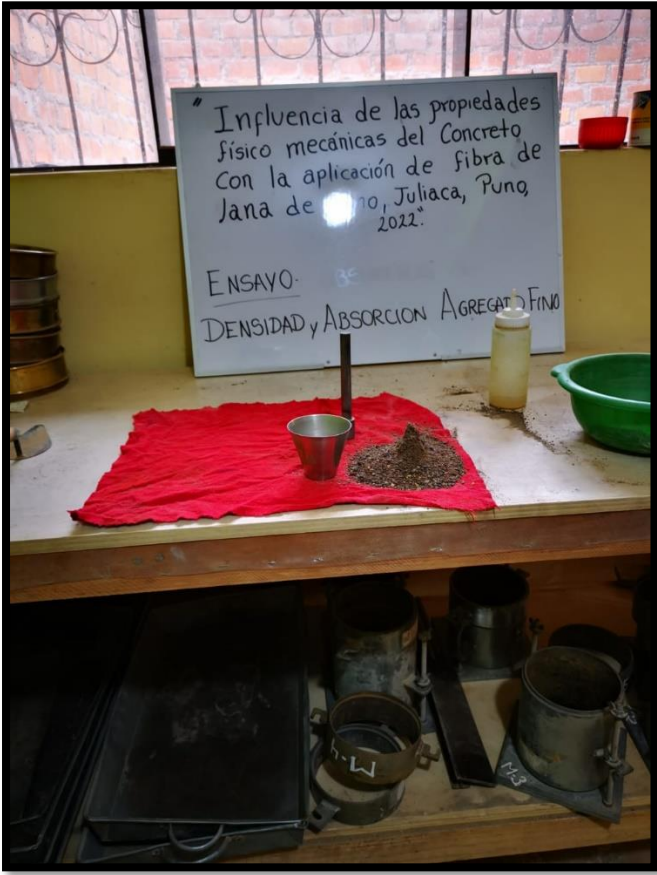 " Influencia de las propiedades
físico mecánicas del Concreto
Con la aplicación de fibra de
lana de , Juliaca, Puno,
2022".
ENSAYO.
DENSIDAD y ABSORCION AGREGADO FINO
M-4
M-3